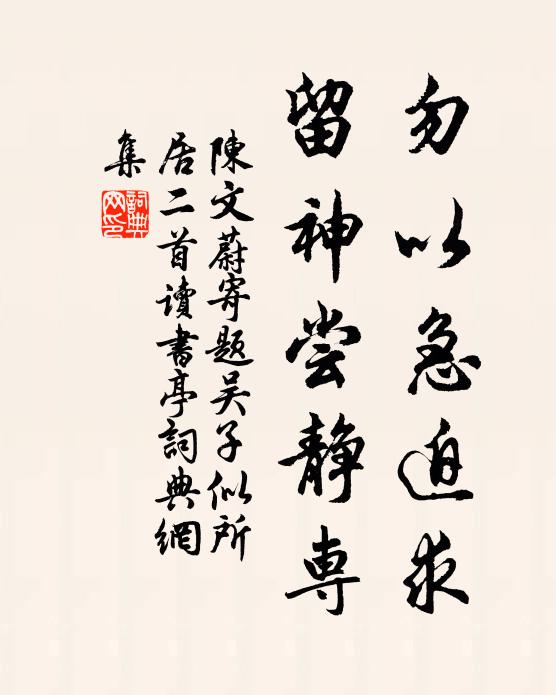 勿以急迫求
留神尝静専
陳文蔚寄题吴子似所
居二首讀書亭詞典網
集
詞典
网印